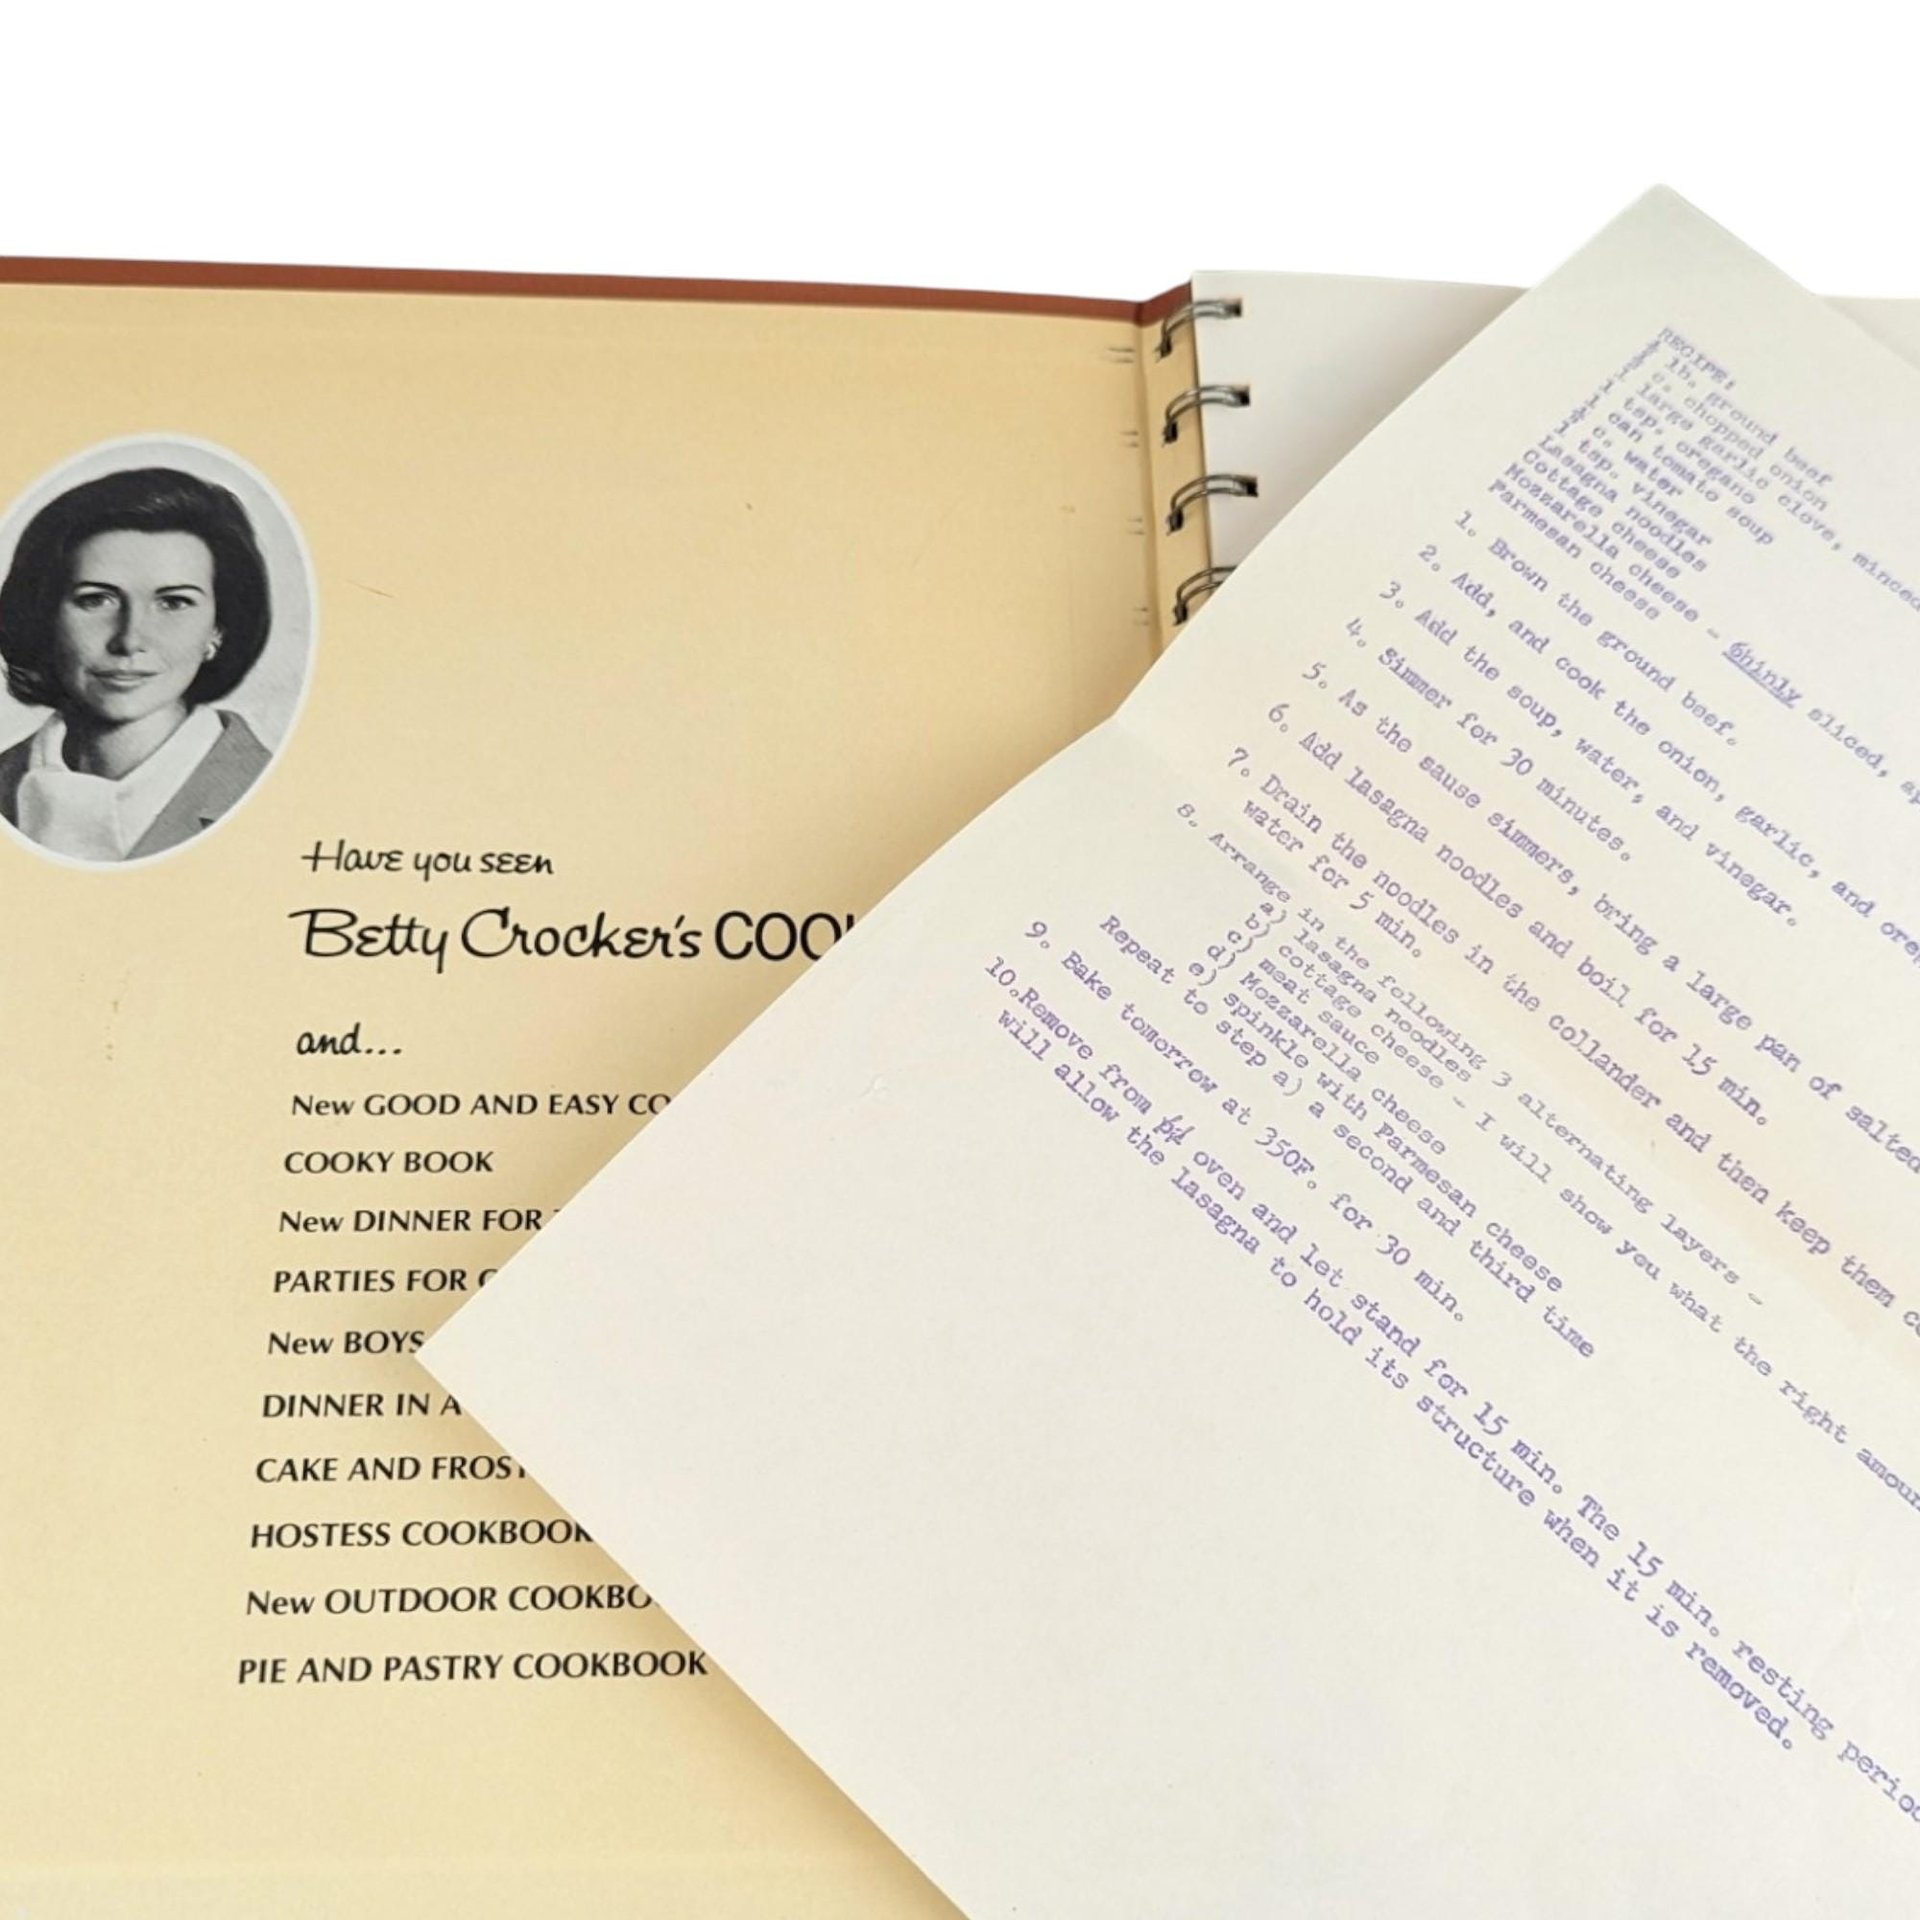 Have you seen
Betty Crocker's
and...
New GOOD AND EASY
COOKY BOOK
New DINNER FOR
PARTIES FOR
New BOYS
DINNER IN A
CAKE AND
HOSTESS COOKBOOK
New OUTDOOR
PIE AND PASTRY COOKBOOK
RECIPE:
lb. ground beef
c. chopped onion
1 large garlic clove, minced
1 tsp. oregano
1 can tomato soup
c. water
1 tsp. vinegar
Lasagna noodles
Cottage cheese
Mozzarella cheese - 6hinly sliced,
Parmesan cheese
1. Brown the ground beef.
2. Add, and cook the onion, garlic, and
3. Add the soup, water, and vinegar.
4. Simmer for 30 minutes.
5. As the sause simmers, bring a large pan of salted
6. Add lasagna noodles and boil for 15 min.
7. Drain the noodles in the collander and then keep them
water for 5 min.
8. Arrange in the following 3 alternating layers -
a) lasagna noodles
b) cottage cheese - I will show you what the right
c) meat sauce
d) Mozzarella cheese
e) spinkle with Parmesan cheese
Repeat to step a) a second and third time
9. Bake tomorrow at 350F. for 30 min.
10.Remove from oven and let stand for 15 min. The 15 min. resting
will allow the lasagna to hold its structure when it is removed.